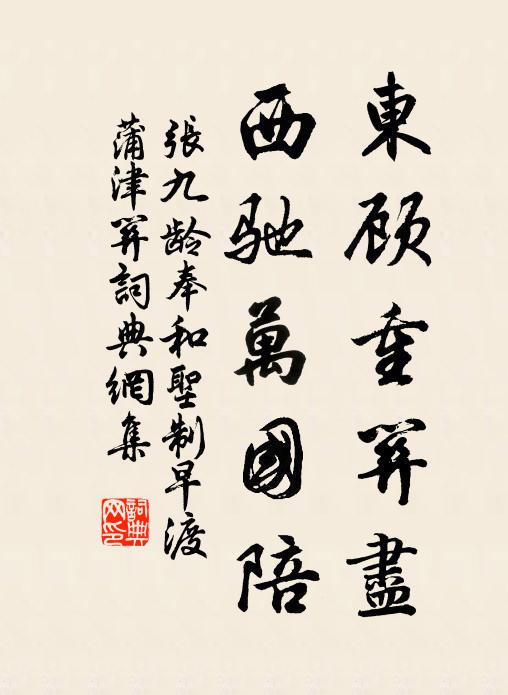 東顾重関盡
西馳萬國陪
張九龄奉和聖制早渡
蒲津関詞典網集
詞典
网印